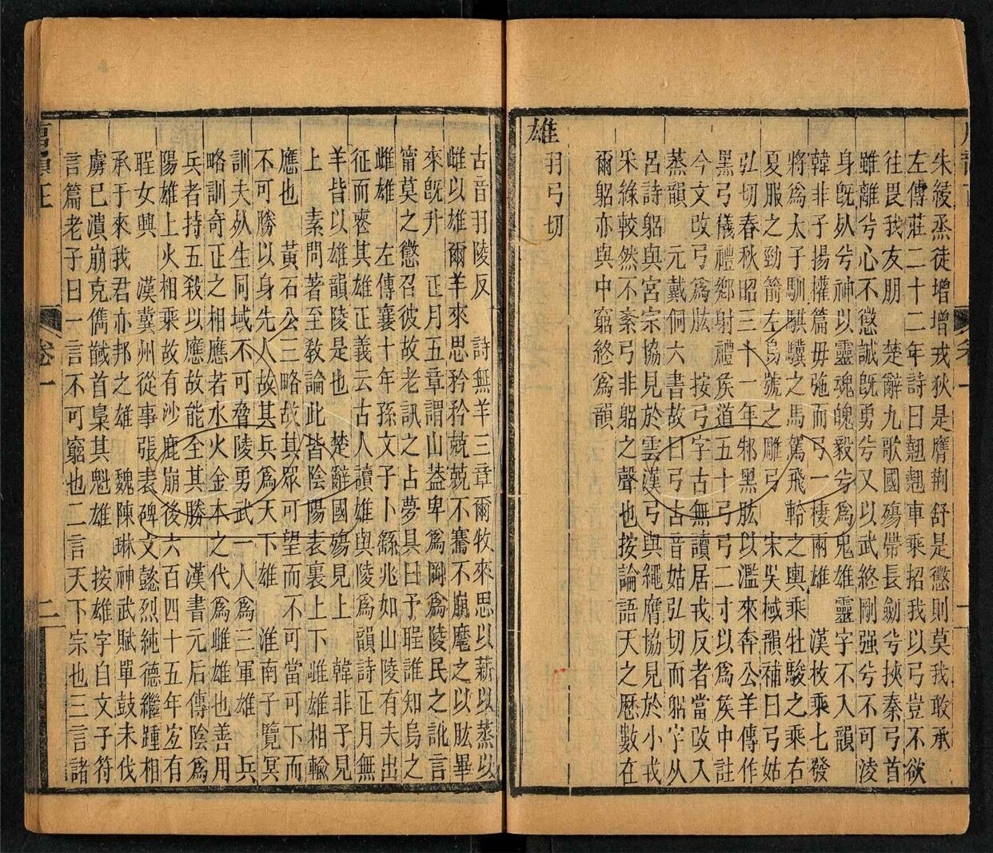 朱綅烝徒增增戎狄是膺荊舒是懲則莫我敢承
左傳莊二十二年詩曰翹翹車乘招我以弓豈不欲
往畏我友朋　楚辭九歌國殤帶長劒兮挾秦弓首
雖離兮心不懲誠既勇兮又以武終剛强兮不可淩
身既死兮神以靈魂魄毅兮爲鬼雄靈字不入韻
韓非子揚權篇毋弛而弓一棲兩雄　漢枚乘七發
將爲太子馴騏驥之馬駕飛軨之輿乘牡駿之乘右
夏服之勁箭左烏號之雕弓　宋吳棫韻補曰弓姑
弘切春秋昭三十一年邾黑肱以濫來奔公羊傳作
黑弓儀禮鄉射禮侯道五十弓弓二寸以爲侯中註
今文改弓爲肱　按弓字古無讀居戎反者當改入
蒸韻　元戴侗六書故曰弓古音姑弘切而躳字从
呂詩躳與宮宗協見於雲漢弓與繩膺協見於小戎
采綠較然不紊弓非躳之聲也按論語天之厯數在
爾躳亦與中窮終爲韻
雄
羽弓切
古音羽陵反　詩無羊三章爾牧來思以薪以蒸以
雌以雄爾羊來思矜矜兢兢不騫不崩麾之以肱畢
來既升　正月五章謂山葢卑爲岡爲陵民之訛言
甯莫之懲召彼故老訊之占夢具曰予聖誰知烏之
雌雄　左傳襄十年孫文子卜繇兆如山陵有夫出
征而喪其雄正義云古人讀雄與陵爲韻詩正月無
羊皆以雄韻陵是也　楚辭國殤見上　韓非子見
上　素問著至教論此皆陰陽表裏上下雌雄相輸
應也　黃石公三略故其眾可望而不可當可下而
不可勝以身先人故其兵爲天下雄　淮南子覽冥
訓夫死生同域不可脅陵勇武一人爲三軍雄　兵
略訓奇正之相應若水火金木之代爲雌雄也善用
兵者持五殺以應故能全其勝　漢書元后傳陰爲
陽雄土火相乘故有沙鹿崩後六百四十五年宜有
聖女興　漢冀州從事張表碑文懿烈純德繼踵相
承于來我君亦邦之雄　魏陳琳神武賦單鼓未伐
虜已潰崩克儁馘首梟其魁雄　按雄字白文子符
言篇老子曰一言不可窮也二言天下宗也三言諸
卷一
二